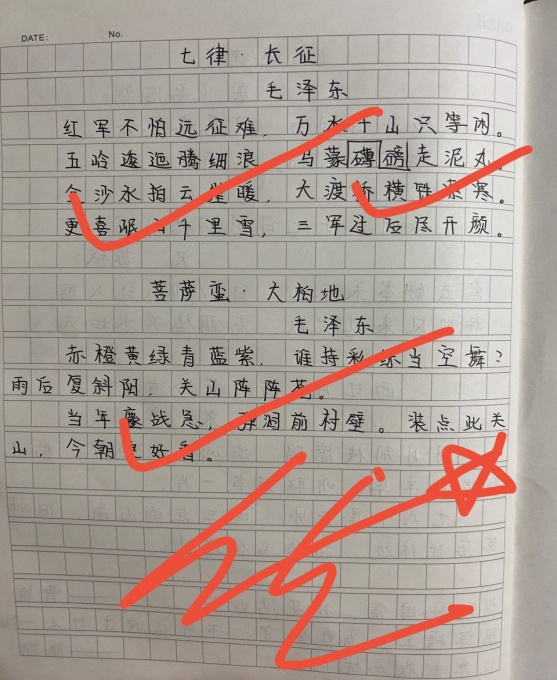 DATE: No.
七律·长征
毛泽东
红军不怕远征难，万水千山只等闲。
五岭逶迤腾细浪 乌蒙磅礴走泥丸。
金沙水拍云崖暖，大渡桥横铁索寒。
更喜岷山千里雪，三军过后尽开颜。
菩萨蛮·大柏地
毛泽东
赤橙黄绿青蓝紫，谁持彩练当空舞？
雨后复斜阳，关山阵阵苍。
当年鏖战急，弹洞前村壁。装点此关
山，今朝更好看。